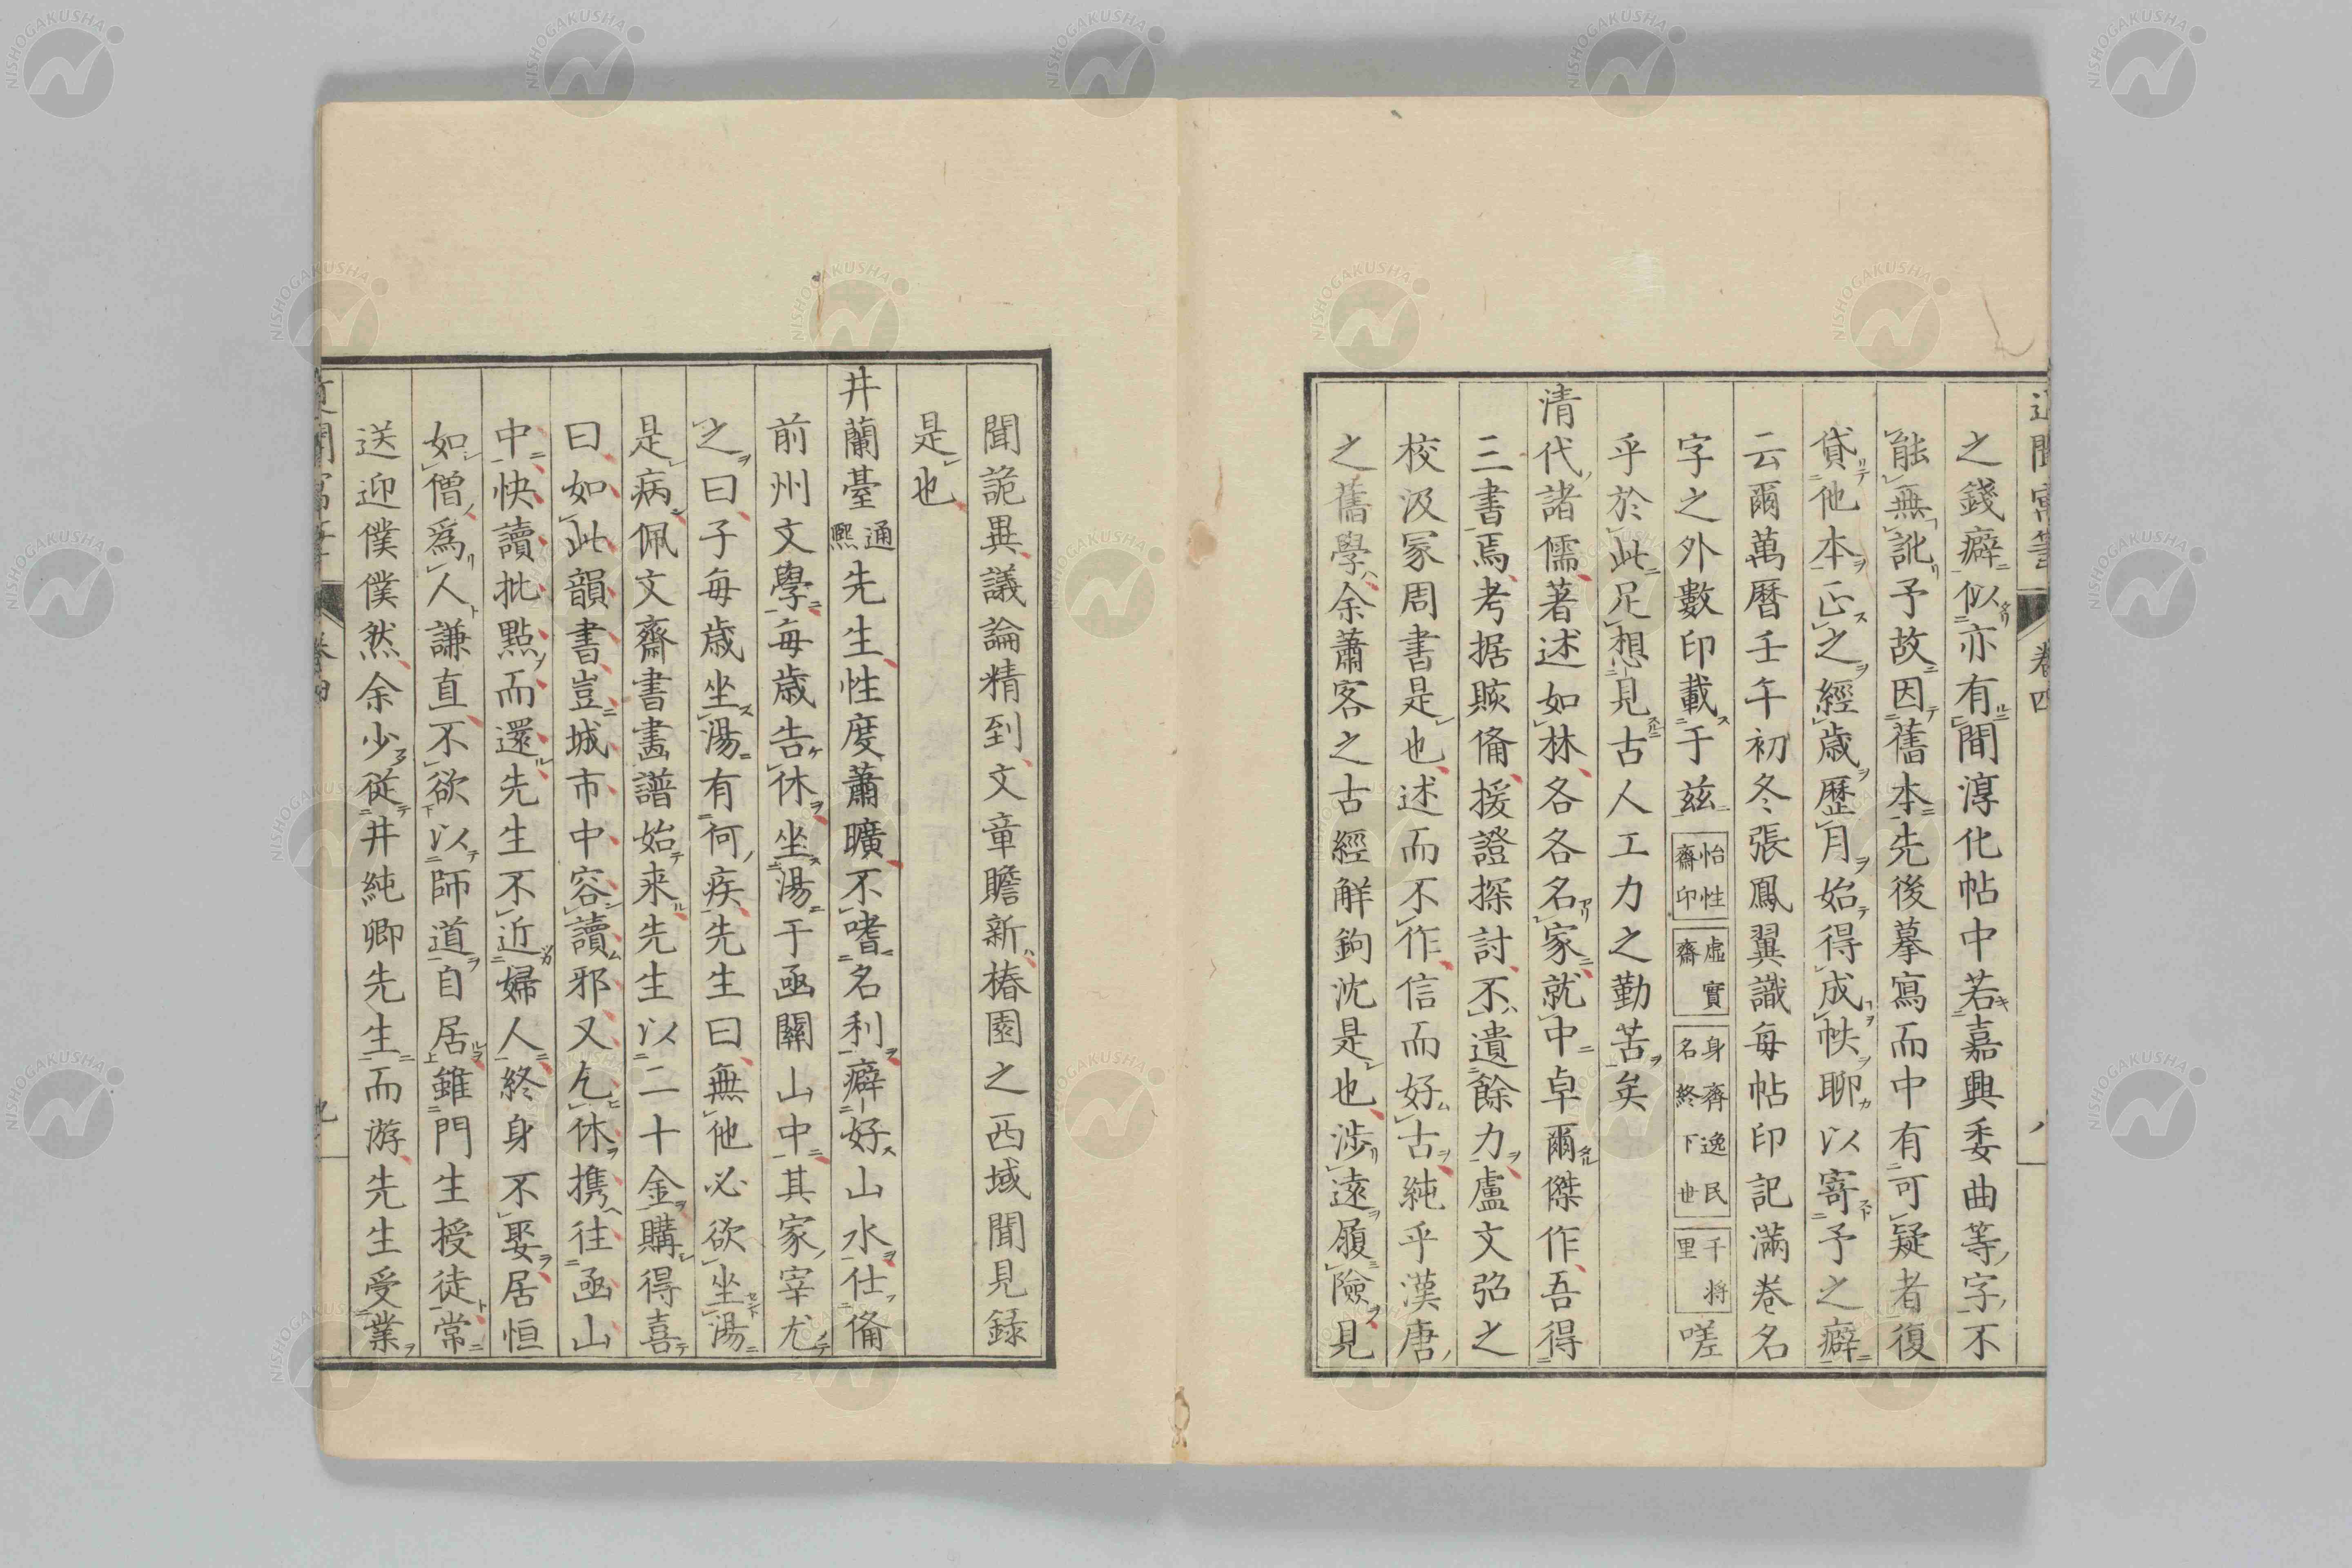 近聞寓筆 卷四 八
之錢癖似亦有間淳化帖中若嘉興委曲等字不
能無訛予故因舊本先後摹寫而中有可疑者復
貸他本正之經歲歷月始得成帙聊以寄予之癖
云爾萬曆壬午初冬張鳳翼識每帖印記滿卷名
字之外數印載于茲
怡性齋印
虛實齋
身齊逸民名終下世
千里將
嗟
乎於此足想見古人工力之勤苦矣
清代諸儒著述如林各各名家就中卓爾傑作吾得
三書焉考据賅備援證探討不遺餘力盧文弨之
校汲冢周書是也述而不作信而好古純乎漢唐
之舊學余蕭客之古經解鉤沈是也涉遠履險見
聞詭異議論精到文章贍新椿園之西域聞見録
是也
井蘭臺通熙先生性度蕭曠不嗜名利癖好山水仕備
前州文學每歲告休坐湯于函關山中其家宰尤
之曰子每歲坐湯有何疾先生曰無他必欲坐湯
是病佩文齋書畫譜始来先生以二十金購得喜
曰如此韻書豈城市中容讀邪又乞休携往函山
中快讀批點而還先生不近婦人終身不娶居恒
如僧爲人謙直不欲以師道自居雖門生授徒常
送迎僕僕然余少從井純卿先生而游先生受業
近聞寓筆 卷四 九
NISHOGAKUSHA